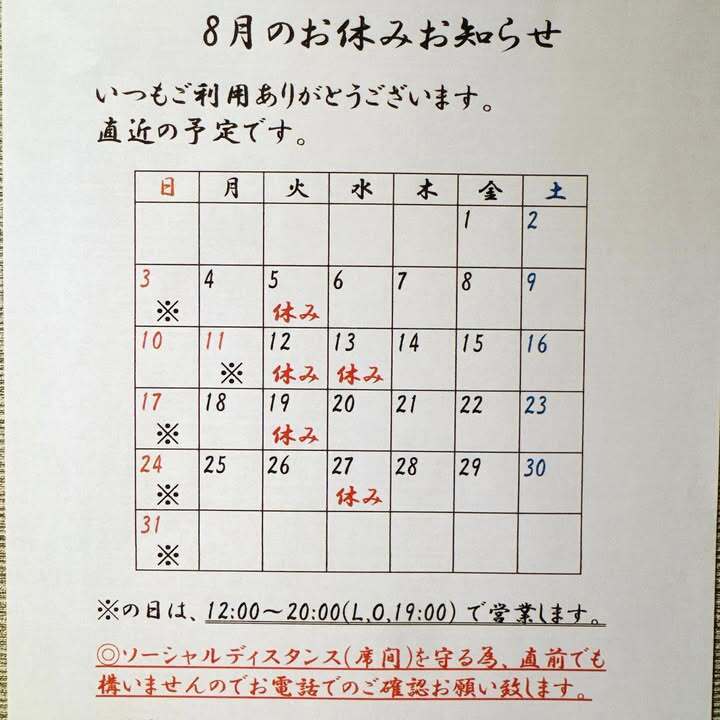 8月のお休みお知らせ
いつもご利用ありがとうございます。
直近の予定です。
日 月 火 水 木 金 土
1 2
3 4 5 6 7 8 9
※ 休み
10 11 12 13 14 15 16
※ 休み 休み
17 18 19 20 21 22 23
※ 休み
24 25 26 27 28 29 30
※ 休み
31
※
※の日は、12:00～20:00(L,O,19:00) で営業します。
◎ソーシャルディスタンス(席間)を守る為、直前でも
構いませんのでお電話でのご確認お願い致します。